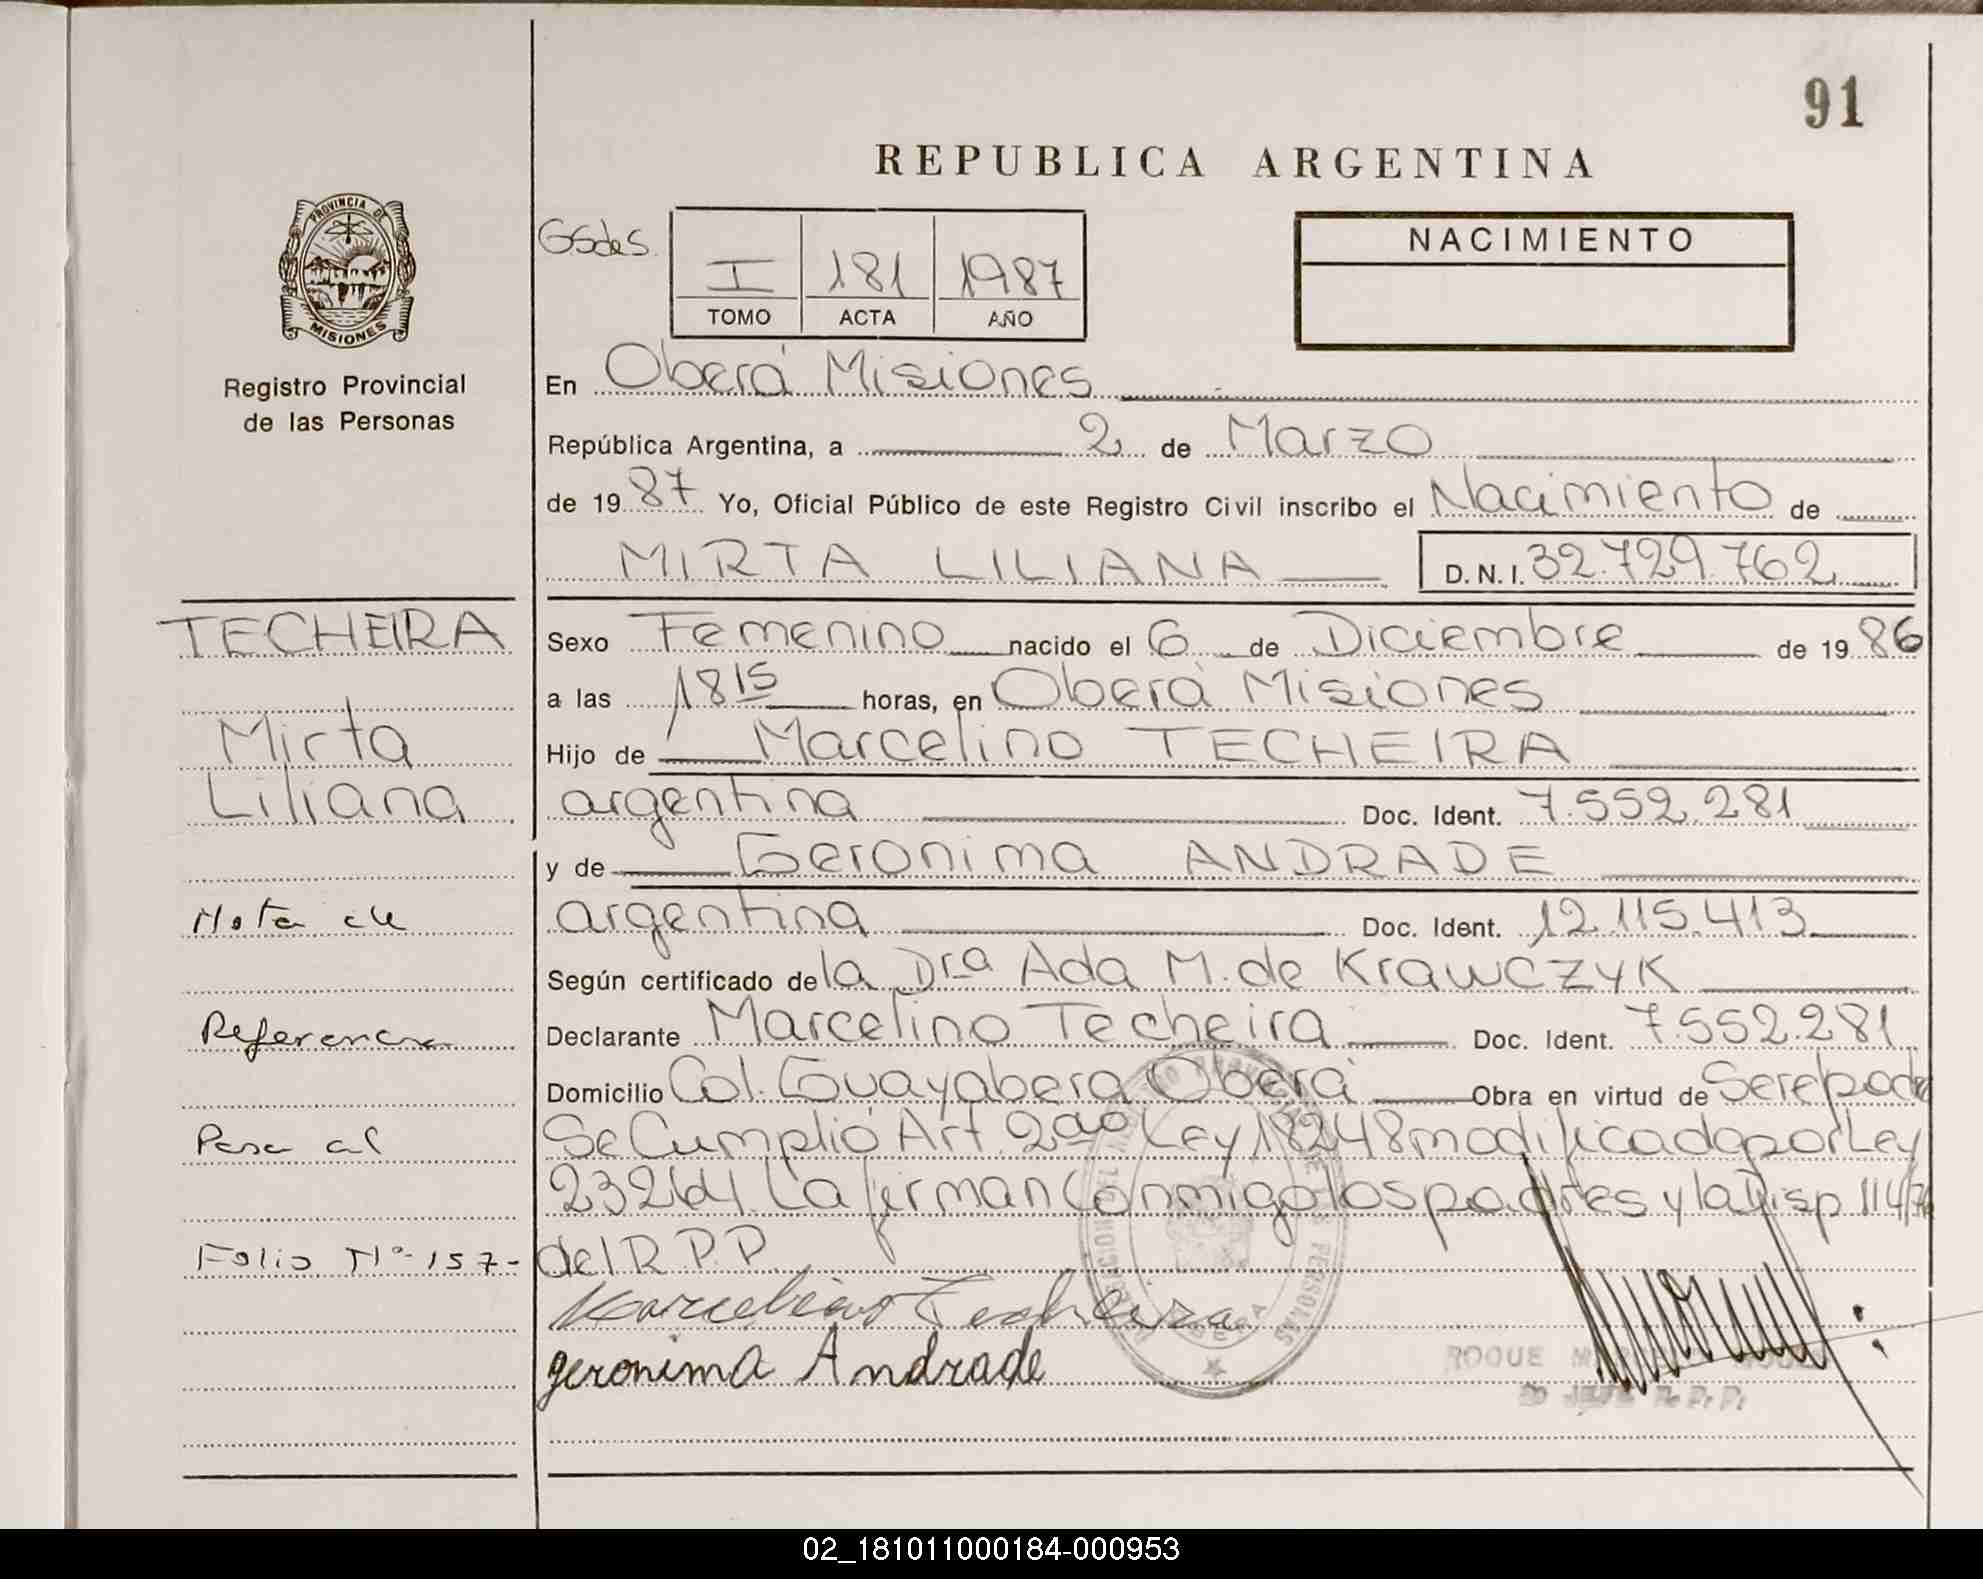 91
REPUBLICA ARGENTINA
PROVINCIA DE
MISIONES
Registro Provincial
de las Personas
I 181 1987
TOMO ACTA AÑO
NACIMIENTO
En Oberá Misiones
República Argentina, a 2 de Marzo
de 1987 Yo, Oficial Público de este Registro Civil inscribo el Nacimiento de
MIRTA LILIANA D.N.I. 32.729.762
TECHEIRA
Mirta
Liliana
Nota de
Referencia
Pasa al
Folio Nº 157-
Sexo Femenino nacido el 6 de Diciembre de 1986
a las 18 15 horas, en Oberá Misiones
Hijo de Marcelino TECHEIRA
argentina Doc. Ident. 7.552.281
y de Geronima ANDRADE
argentina Doc. Ident. 12.115.413
Según certificado de la Dra Ada M. de KrawczyK
Declarante Marcelino Techeira Doc. Ident. 7.552.281
Domicilio Col. Guayabera Oberá Obra en virtud de
Se Cumplió Art. 2do Ley 18248 modificado por Ley
23264. La firman Conmigo los padres y la Disp 114/
del R.P.P.
Marcelino Techeira
geronima Andrade
ROQUE
JEFE R.P.P.
02_181011000184-000953